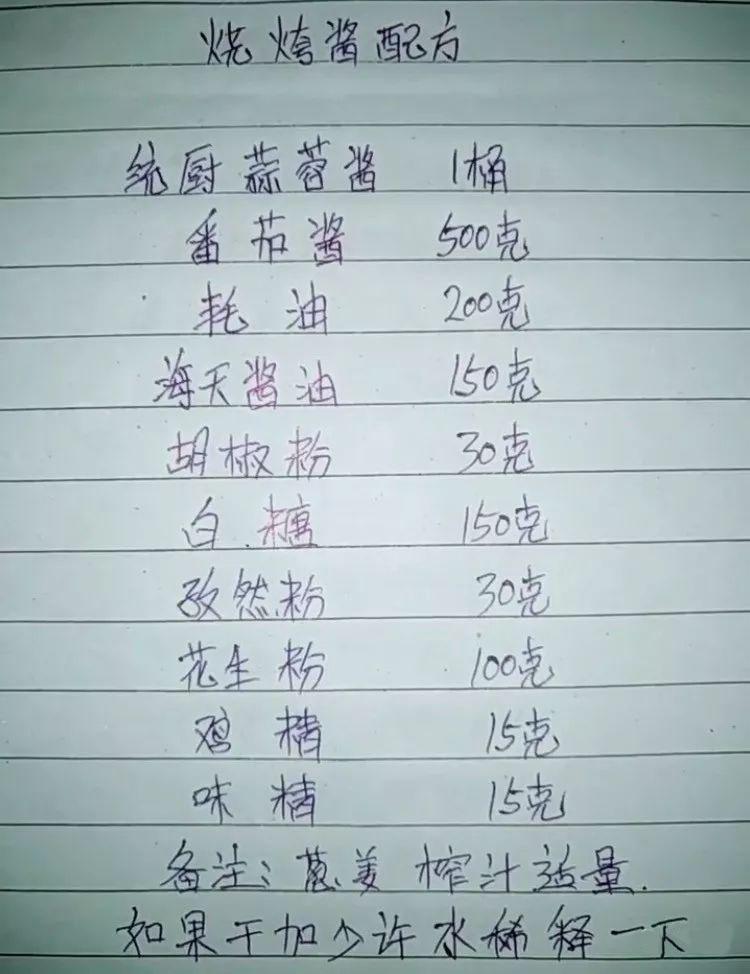 烧烤酱配方
统厨蒜蓉酱 1桶
番茄酱 500克
耗油 200克
海天酱油 150克
胡椒粉 30克
白糖 150克
孜然粉 30克
花生粉 100克
鸡精 15克
味精 15克
备注:葱姜榨汁适量.
如果干加少许水稀释一下